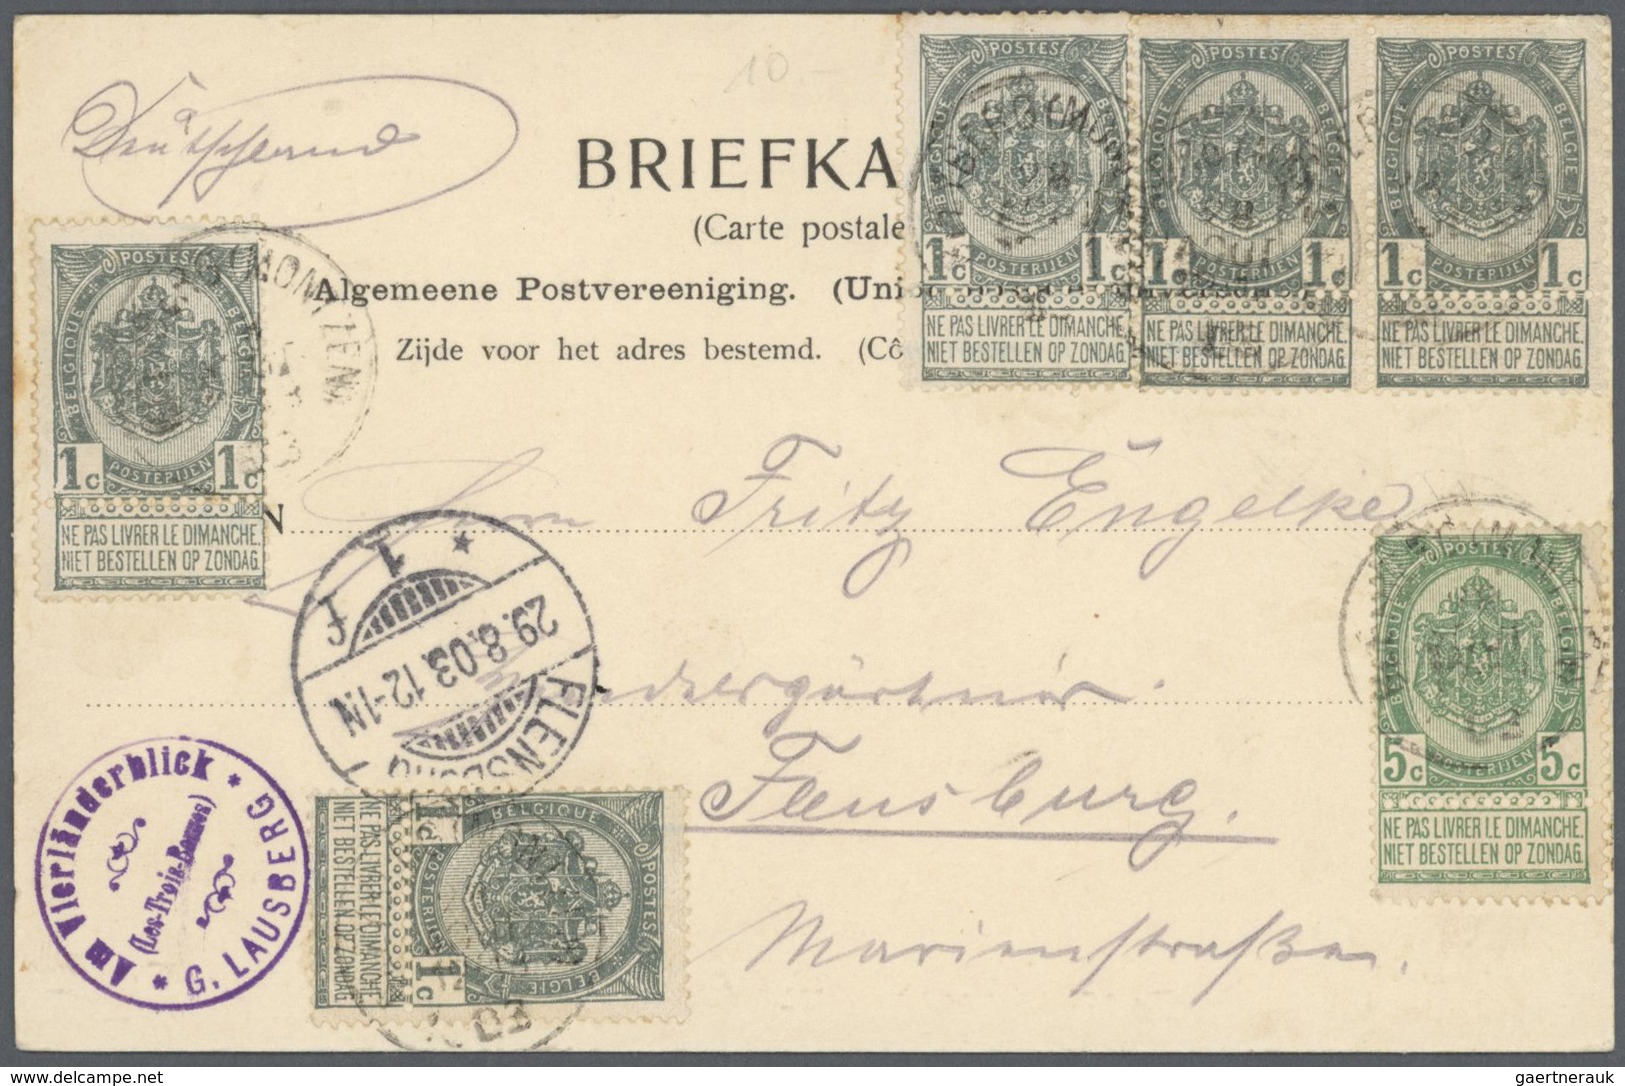 10.-
Deutschland
BRIEFKA
(Carte postale
Algemeene Postvereeniging. (Uni
Zijde voor het adres bestemd. (Cô
POSTES
BELGIQUE BELGIE
1c 1c
POSTERIJEN
NE PAS LIVRER LE DIMANCHE.
NIET BESTELLEN OP ZONDAG.
POSTES
BELGIQUE BELGIE
1c 1c
POSTERIJEN
NE PAS LIVRER LE DIMANCHE.
NIET BESTELLEN OP ZONDAG.
POSTES
BELGIQUE BELGIE
1c 1c
POSTERIJEN
NE PAS LIVRER LE DIMANCHE.
NIET BESTELLEN OP ZONDAG.
AOUT
POSTES
BELGIQUE BELGIE
1c 1c
POSTERIJEN
NE PAS LIVRER LE DIMANCHE.
NIET BESTELLEN OP ZONDAG.
(MONTZEN)
N
Herrn Fritz Engelke
Flensburg.
Marienstraße.
* 1 f
29.8.03. 12-1N
FLENSBURG
Am Vierländerblick
(Les-Trois-Bornes)
* G. LAUSBERG *
POSTES
BELGIQUE BELGIE
1c 1c
POSTERIJEN
NE PAS LIVRER LE DIMANCHE.
NIET BESTELLEN OP ZONDAG.
POSTES
BELGIQUE BELGIE
5c 5c
POSTERIJEN
NE PAS LIVRER LE DIMANCHE.
NIET BESTELLEN OP ZONDAG.
www.delcampe.net
gaertnerauk